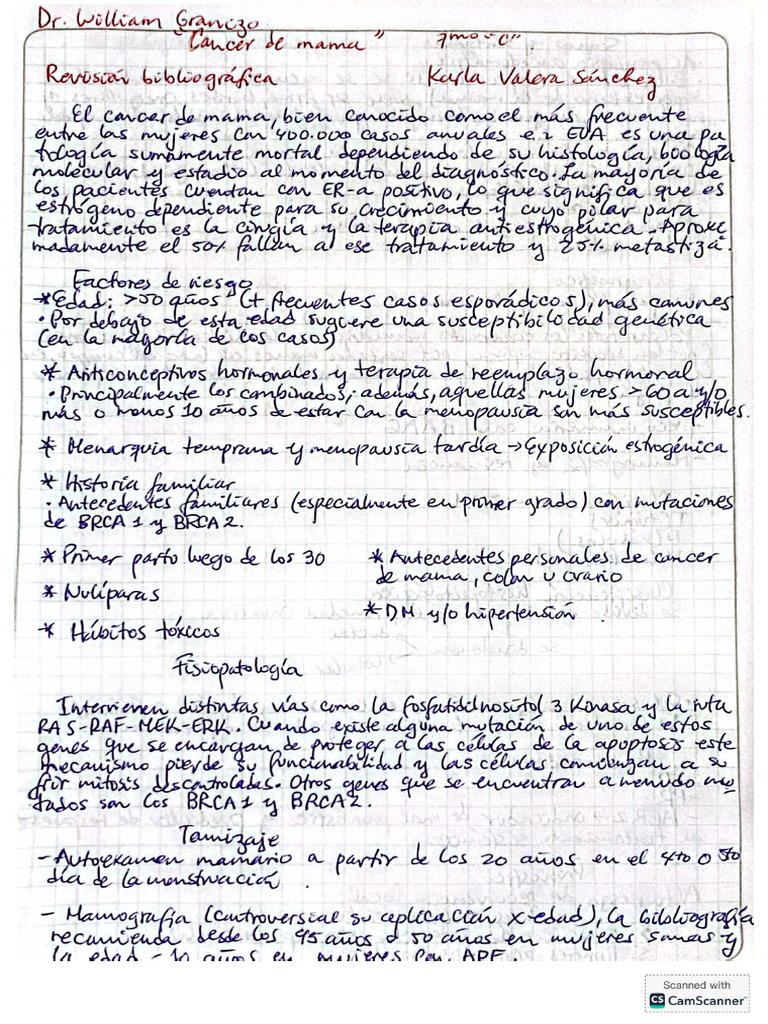 Dr. William Granizo
"Cancer de mama" 7mo "C".
Revisión bibliográfica Karla Valera Sánchez
El cancer de mama, bien conocido como el más frecuente
entre las mujeres con 400.000 casos anuales en EUA es una pa
tología sumamente mortal dependiendo de su histología, biología
molecular y estadio al momento del diagnóstico. La mayoría de
los pacientes cuentan con ER-a positivo, lo que significa que es
estrógeno dependiente para su crecimiento y cuyo pilar para
tratamiento es la cirugía y la terapia antiestrogénica. Aproxi
madamente el 50% fallan a ese tratamiento y 25% metastiza.
Factores de riesgo
* Edad: >50 años (+ frecuentes casos esporádicos), más comunes
· Por debajo de esta edad sugiere una susceptibilidad genética
(en la mayoría de los casos)
* Anticonceptivos hormonales y terapia de reemplazo hormonal
· Principalmente los combinados, además, aquellas mujeres >60a y/o
más o menos 10 años de estar con la menopausia son más susceptibles.
* Menarquia temprana y menopausia tardía → Exposición estrogénica
* Historia familiar
· Antecedentes familiares (especialmente en primer grado) con mutaciones
de BRCA1 y BRCA2.
* Primer parto luego de los 30 * Antecedentes personales de cancer
de mama, colon u ovario
* Nulíparas
* DM y/o hipertensión
* Hábitos tóxicos
Fisiopatología
Intervienen distintas vías como la fosfatidelnositol 3 Kinasa y la ruta
RAS-RAF-MEK-ERK. Cuando existe alguna mutación de uno de estos
genes que se encargan de proteger a las células de la apoptosis este
mecanismo pierde su funcionabilidad y las células comienzan a su
frir mitosis descontroladas. Otros genes que se encuentran a menudo mu
tados son los BRCA1 y BRCA2.
Tamizaje
- Autoexamen mamario a partir de los 20 años en el 4to o 5to
día de la menstruación.
- Mamografía (controversial su aplicación x edad), la bibliografía
recomienda desde los 45 años o 50 años en mujeres sanas y
la edad - 10 años en mujeres con APF.
Scanned with
CS CamScanner